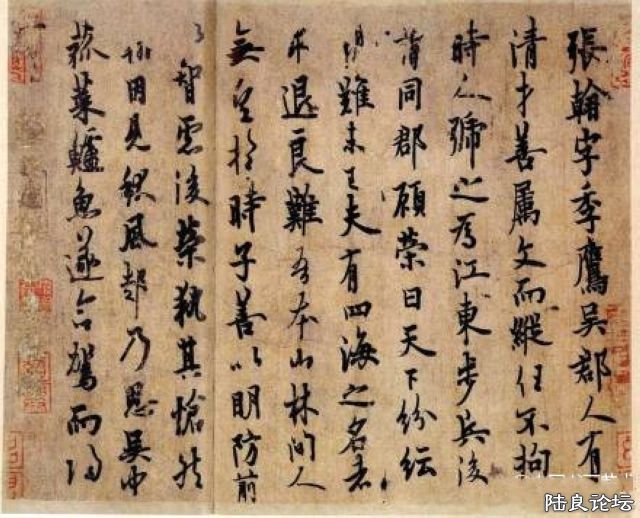 張翰字季鷹吳郡人有
清才善屬文而縱任不拘
時人號之為江東步兵後
謂同郡顧榮曰天下紛紜
禍難未已夫有四海之名者
求退良難吾本山林間人
無望於時子善以明防前
以智慮後榮執其愴然
翰因見秋風起乃思吳中
菰菜鱸魚遂命駕而歸
陆良论坛